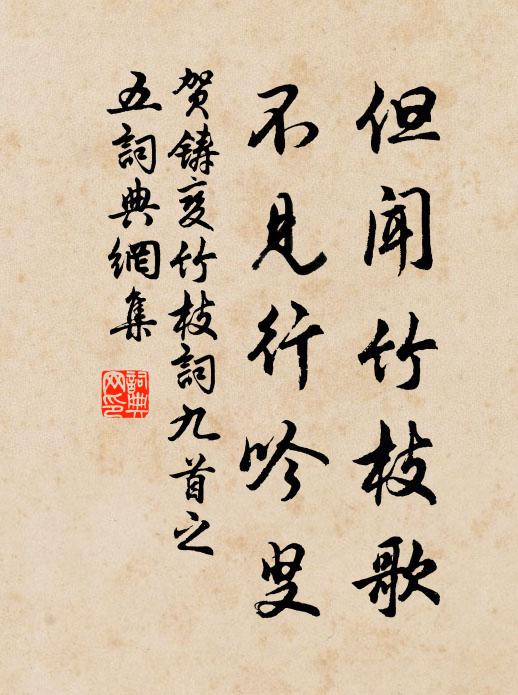 但闻竹枝歌
不见行吟叟
贺铸变竹枝词九首之
五词典网集
词典网印